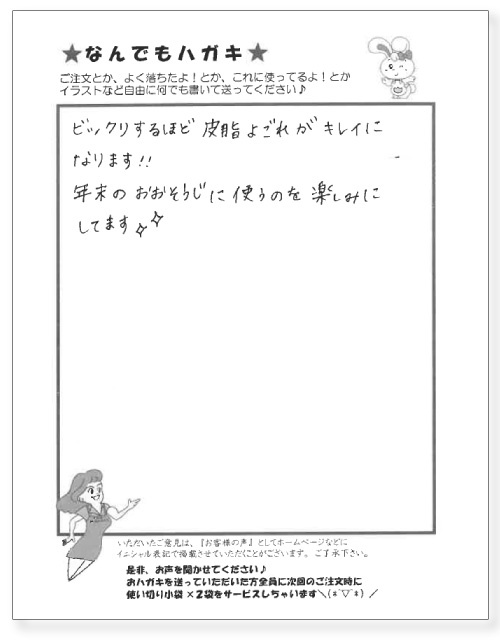 ★なんでもハガキ★
ご注文とか、よく落ちたよ！とか、これに使ってるよ！とか
イラストなど自由に何でも書いて送ってください♪
ビックリするほど 皮脂よごれが キレイに
なります!!
年末の おおそうじに 使うのを 楽しみに
してます✧✧
いただいたご意見は、『お客様の声』としてホームページなどに
イニシャル表記で掲載させていただくことがございます。ご了承下さい。
是非、お声を聞かせてください♪
おハガキを送っていただいた方全員に次回のご注文時に
使い切り小袋×2袋をサービスしちゃいます＼(*´▽`*)／